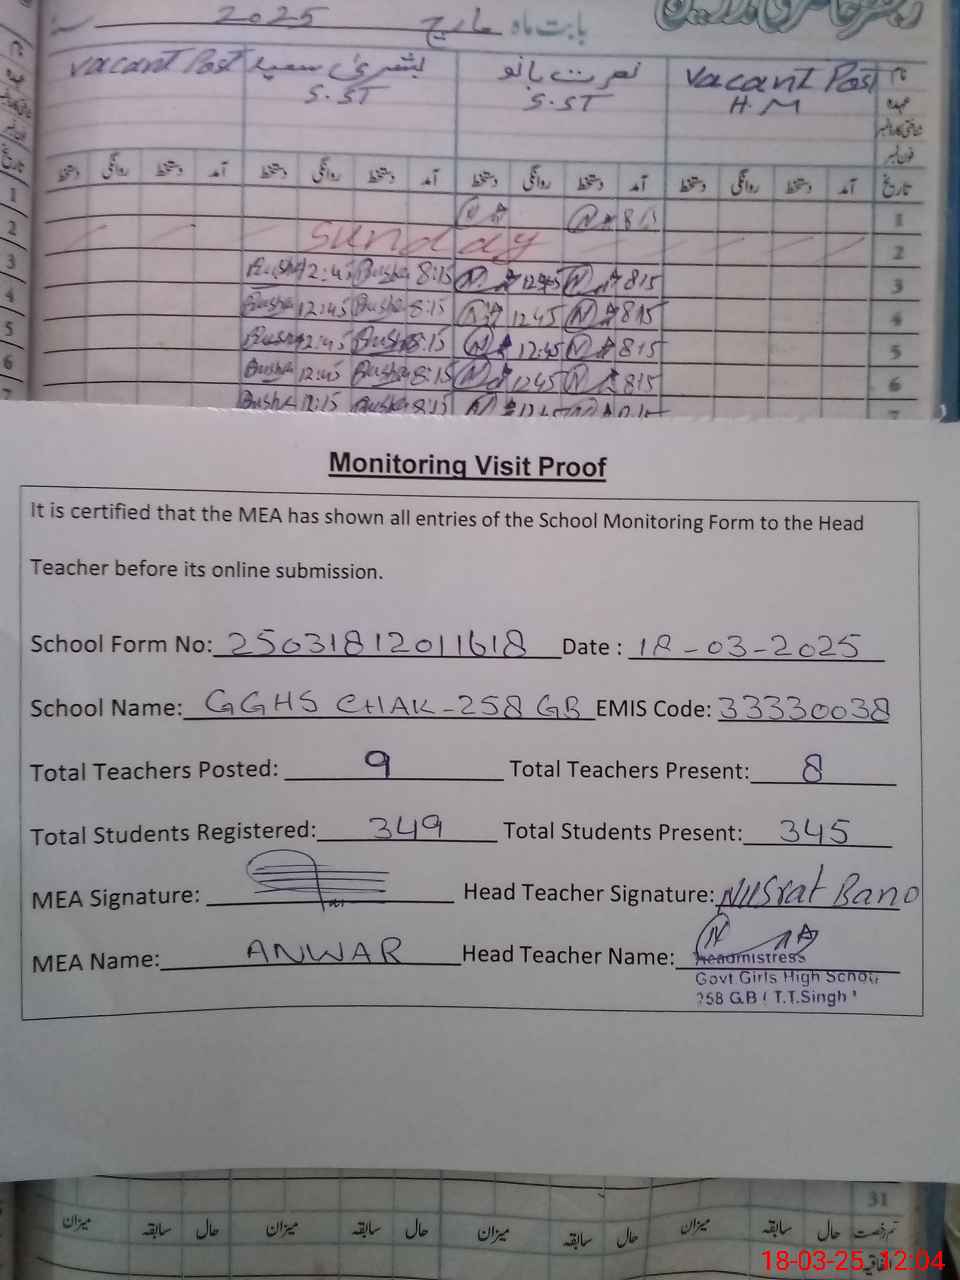 بابت ماہ مارچ 2025
vacant Post بشریٰ سعید نصرت بانو vacant Post نام
S.ST S.ST H.M عہدہ
شناختی کارڈ نمبر
فون نمبر
دستخط روانگی دستخط آمد دستخط روانگی دستخط آمد دستخط روانگی دستخط آمد دستخط روانگی دستخط آمد تاریخ
1 8:15 1
2 Sunday 2
3 12:45 Bushra 8:15 12:45 8:15 3
4 Bushra 12:45 Bushra 8:15 12:45 8:15 4
5 Bushra 12:45 Bushra 8:15 12:45 8:15 5
6 Bushra 12:45 Bushra 8:15 12:45 8:15 6
Bushra 12:15 Bushra 8:15 7
Monitoring Visit Proof
It is certified that the MEA has shown all entries of the School Monitoring Form to the Head
Teacher before its online submission.
School Form No: 25031812011618 Date : 18-03-2025
School Name: GGHS CHAK-258 GB EMIS Code: 33330038
Total Teachers Posted: 9 Total Teachers Present: 8
Total Students Registered: 349 Total Students Present: 345
MEA Signature: Head Teacher Signature: Nusrat Bano
MEA Name: ANWAR Head Teacher Name:
Headmistress
Govt. Girls High School
258 G.B ( T.T.Singh )
31
میزان سابقہ حال میزان سابقہ حال میزان سابقہ حال میزان سابقہ حال قسم رخصت
18-03-25 12:04